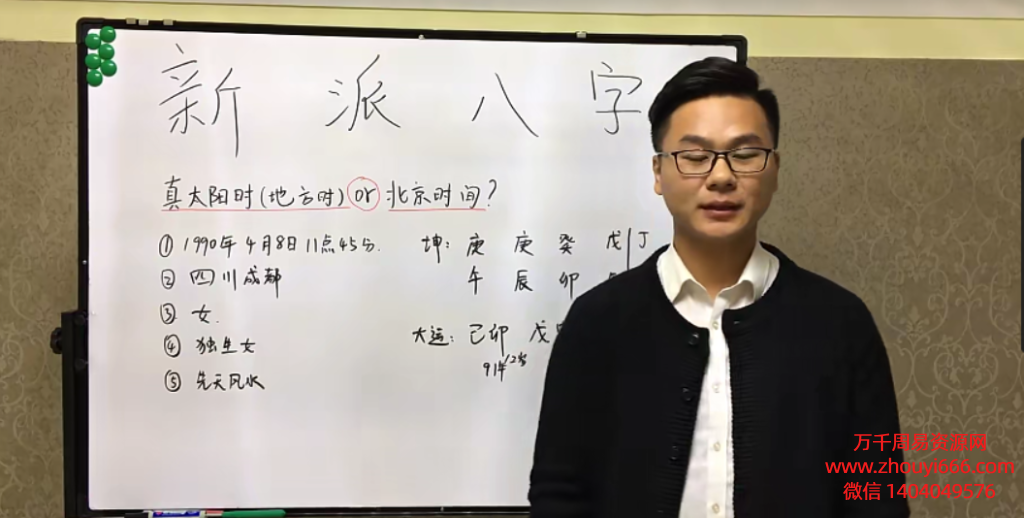 新派八字
真太阳时(地方时)or北京时间?
① 1990年4月8日11点45分.
② 四川成都
③ 女.
④ 独生女
⑤ 先天风水
坤: 庚 庚 癸 戊 丁
午 辰 卯
大运: 己卯 戊
91年/2岁
万千周易资源网
www.zhouyi666.com
微信 1404049576